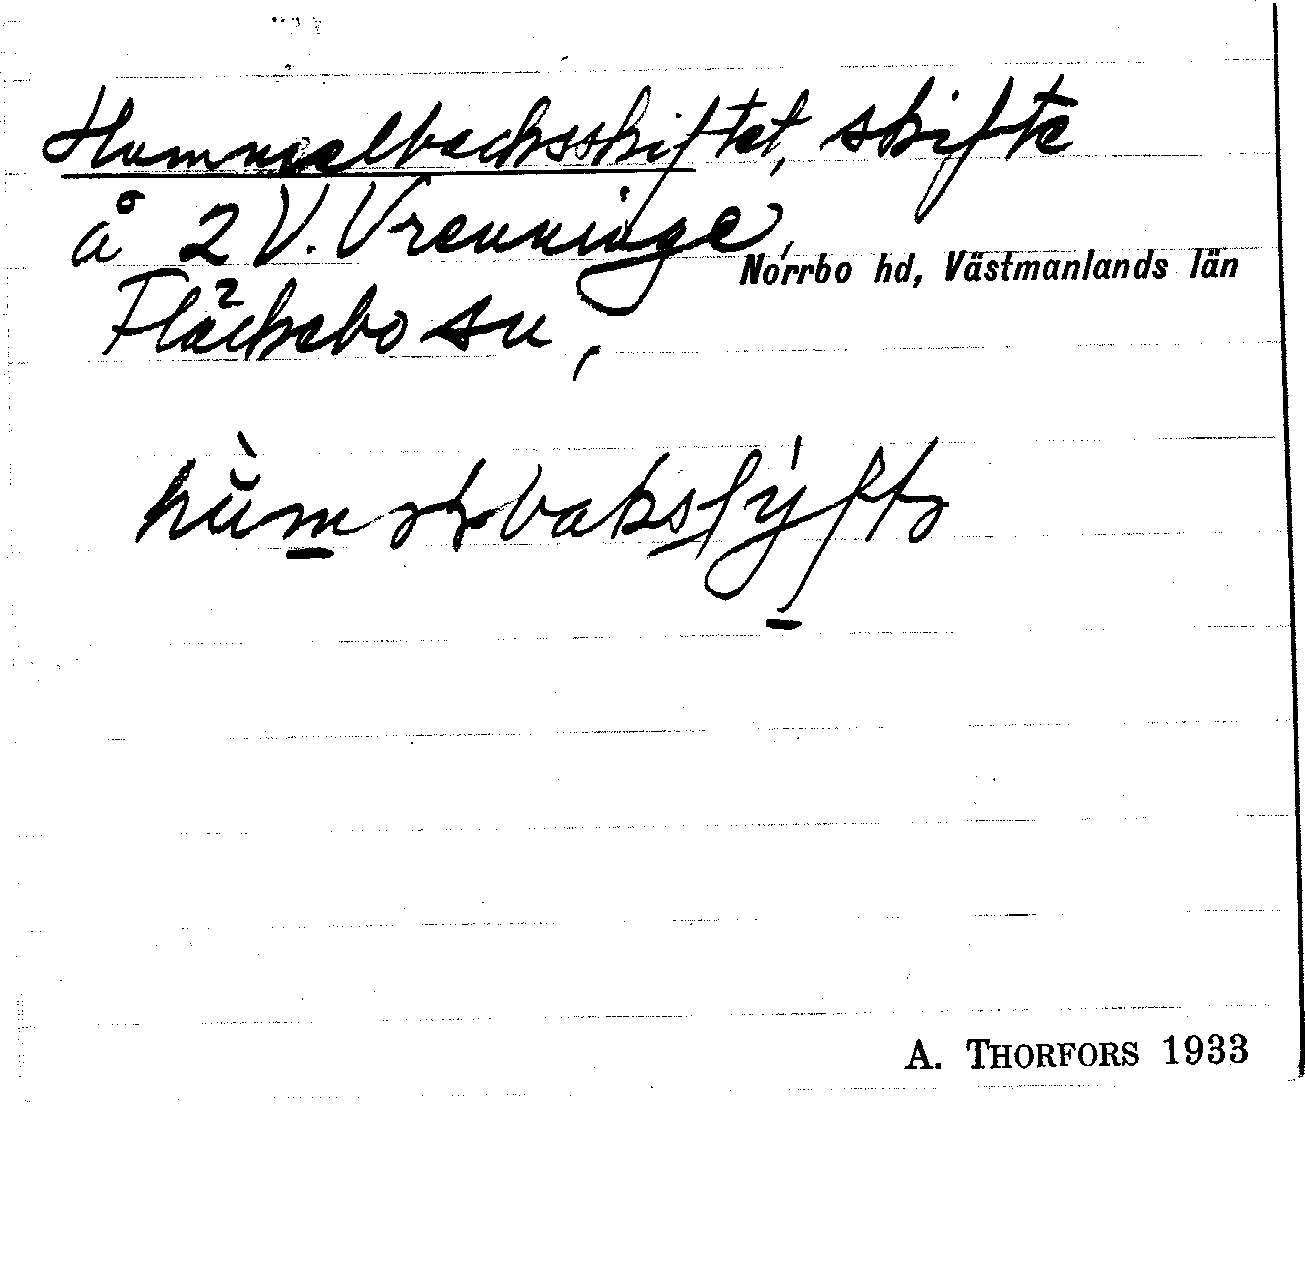 Hummelbacksskiftet, skifte
å 2 V. Vrenninge,
Norrbo hd, Västmanlands län
Fläckebo sn,
A. THORFORS 1933